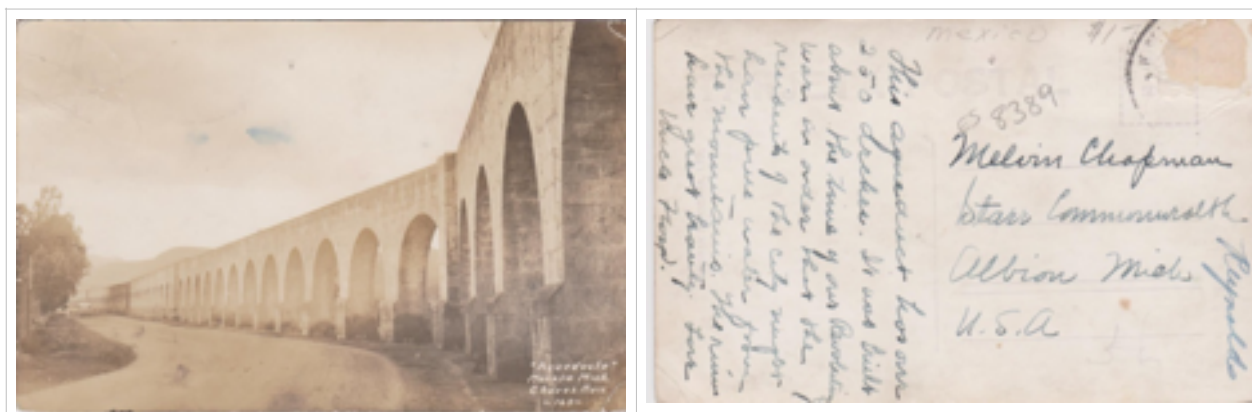 "Acueducto"
Morelia Mich.
Mexico $1-
8389
This aqueduct has over
250 arches. It was built
about the time of our Revolutionary
war in order that the
residents of the city might
have pure water from
the mountains. The ruins
have great beauty.
Melvin Chapman
Starr Commonwealth
Albion Mich
U.S.A
Reynolds